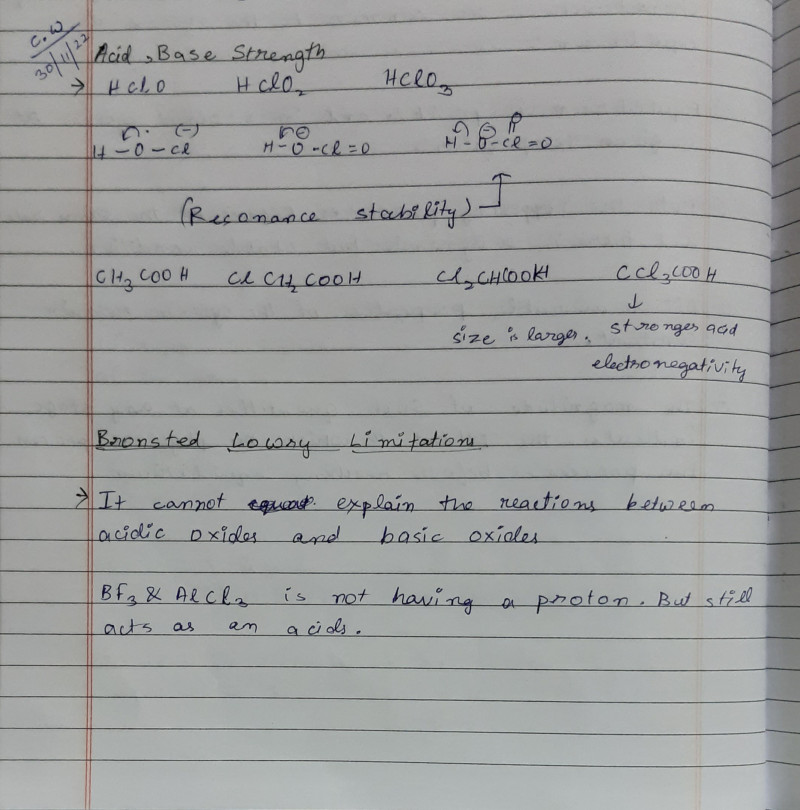 C.W
30/11/22
Acid, Base Strength
→ HClO HClO₂ HClO₃
H-O-Cl (-) H-O-Cl=O H-O-Cl=O
(Resonance stability)
CH₃COOH ClCH₂COOH Cl₂CHCOOH CCl₃COOH
↓
size is larger. stronges acid
electronegativity
Bronsted Lowry Limitations
→ It cannot explain the reactions between
acidic oxides and basic oxides
BF₃ & AlCl₃ is not having a proton. But still
acts as an acids.